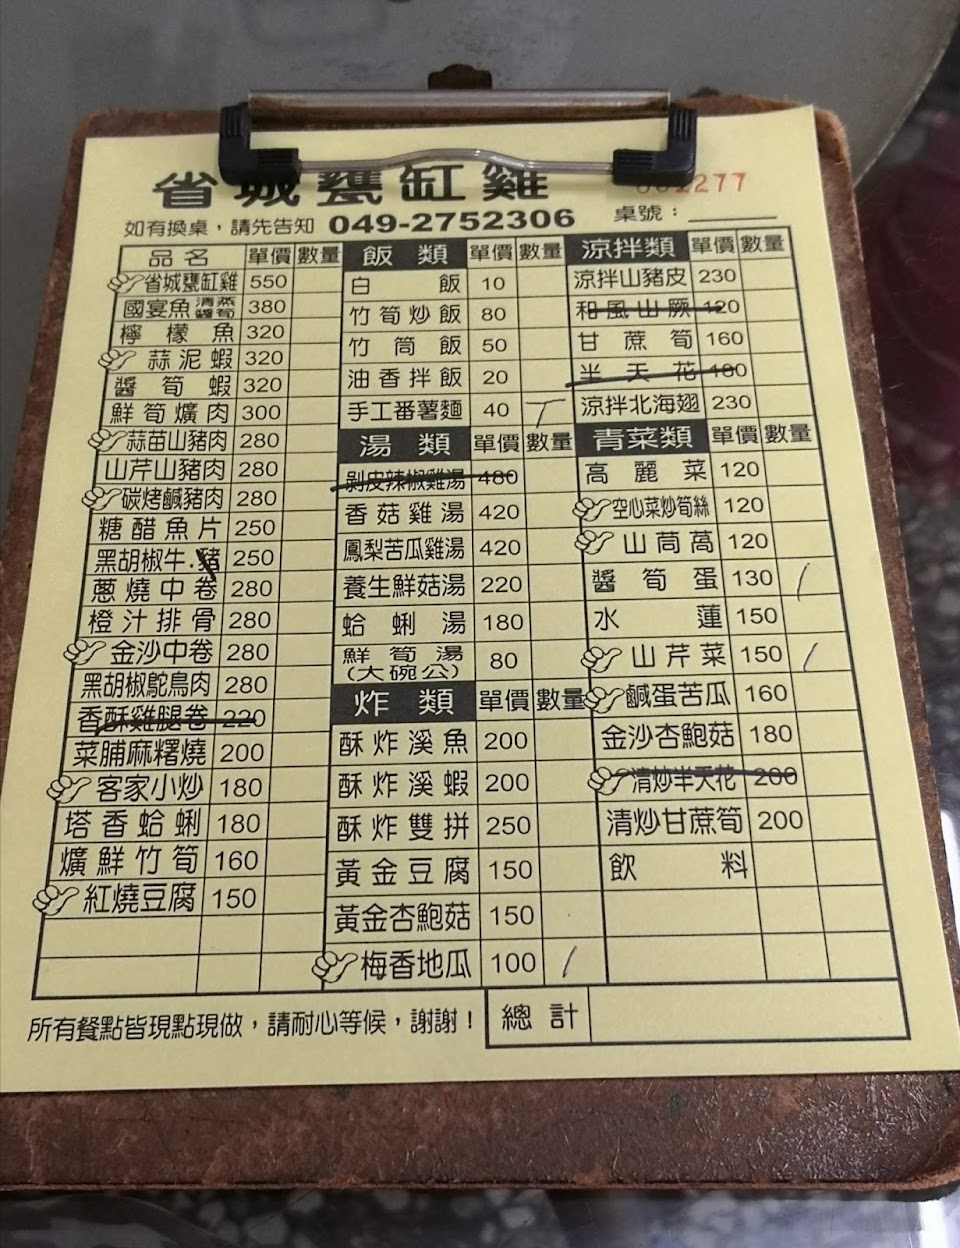 省城甕缸雞
如有換桌，請先告知 049-2752306 桌號：
品名 單價 數量
省城甕缸雞 550
國宴魚 清蒸 醬筍 380
檸檬魚 320
蒜泥蝦 320
醬筍蝦 320
鮮筍爌肉 300
蒜苗山豬肉 280
山芹山豬肉 280
碳烤鹹豬肉 280
糖醋魚片 250
黑胡椒牛.豬 250
蔥燒中卷 280
橙汁排骨 280
金沙中卷 280
黑胡椒鴕鳥肉 280
香酥雞腿卷 220
菜脯麻糬燒 200
客家小炒 180
塔香蛤蜊 180
爌鮮竹筍 160
紅燒豆腐 150
飯類 單價 數量
白飯 10
竹筍炒飯 80
竹筒飯 50
油香拌飯 20
手工番薯麵 40 丅
湯類 單價 數量
剝皮辣椒雞湯 480
香菇雞湯 420
鳳梨苦瓜雞湯 420
養生鮮菇湯 220
蛤蜊湯 180
鮮筍湯 (大碗公) 80
炸類 單價 數量
酥炸溪魚 200
酥炸溪蝦 200
酥炸雙拼 250
黃金豆腐 150
黃金杏鮑菇 150
梅香地瓜 100 /
涼拌類 單價 數量
涼拌山豬皮 230
和風山蕨 120
甘蔗筍 160
半天花 180
涼拌北海翅 230
青菜類 單價 數量
高麗菜 120
空心菜炒筍絲 120
山茼萵 120
醬筍蛋 130 /
水蓮 150
山芹菜 150 /
鹹蛋苦瓜 160
金沙杏鮑菇 180
清炒半天花 200
清炒甘蔗筍 200
飲料
所有餐點皆現點現做，請耐心等候，謝謝！ 總計